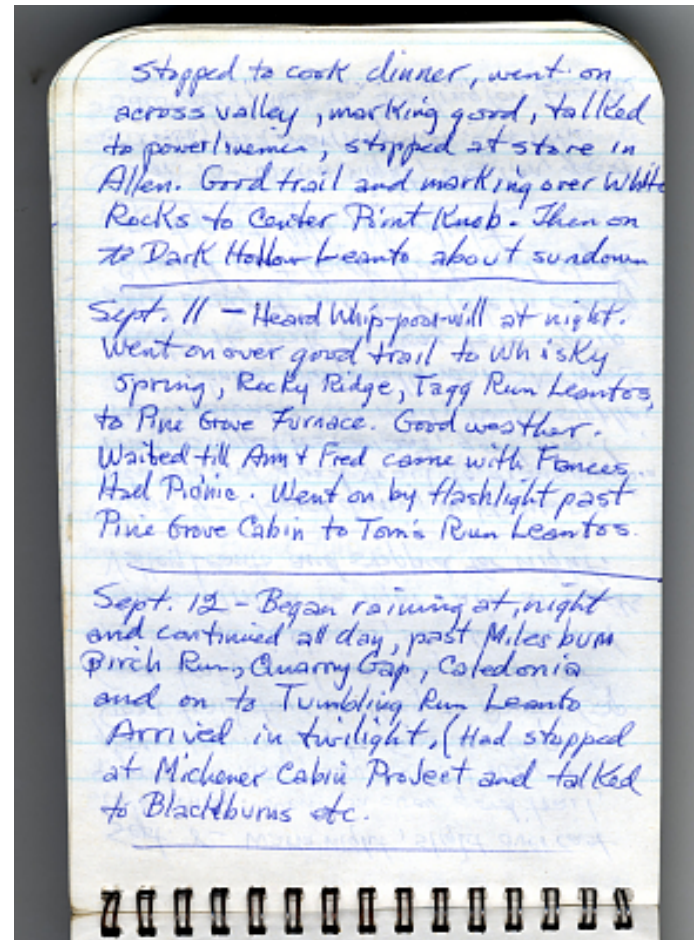 Stopped to cook dinner, went on
across valley, marking good, talked
to powerlinemen, stopped at store in
Allen. Good trail and marking over White
Rocks to Center Point Knob. Then on
to Dark Hollow Leanto about sundown
Sept. 11 - Heard Whip-poor-will at night.
Went on over good trail to Whisky
Spring, Rocky Ridge, Tagg Run Leantos,
to Pine Grove Furnace. Good weather.
Waited till Ann & Fred came with Frances.
Had Picnic. Went on by flashlight past
Pine Grove Cabin to Tom's Run Leantos.
Sept. 12 - Began raining at night
and continued all day, past Milesburn
Birch Run, Quarry Gap, Caledonia
and on to Tumbling Run Leanto
Arrived in twilight, (Had stopped
at Michener Cabin Project and talked
to Blackburns etc.